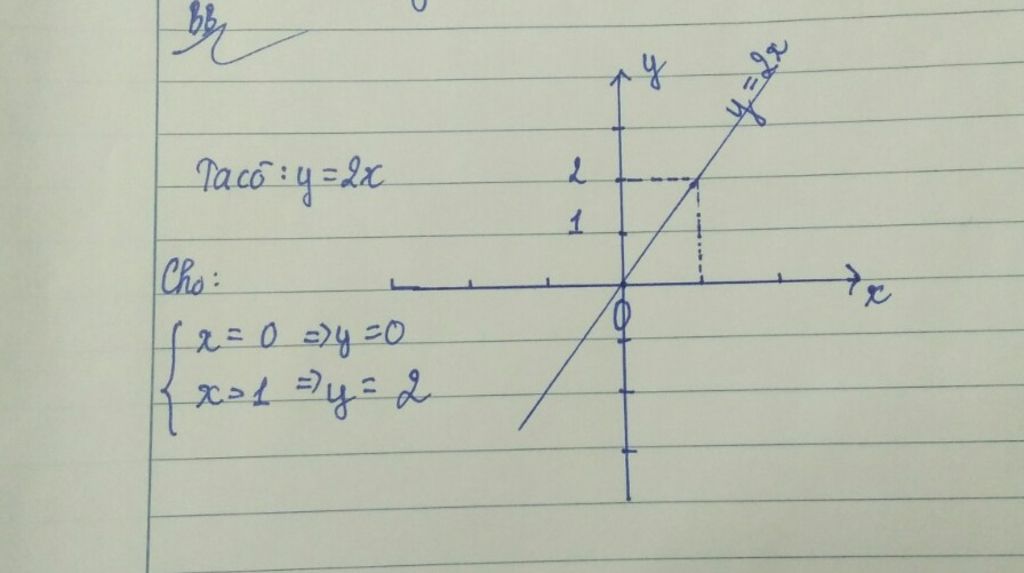 BB
Ta có : y = 2x
Cho:
x = 0 => y = 0
x = 1 => y = 2
y
y = 2x
2
1
0
x